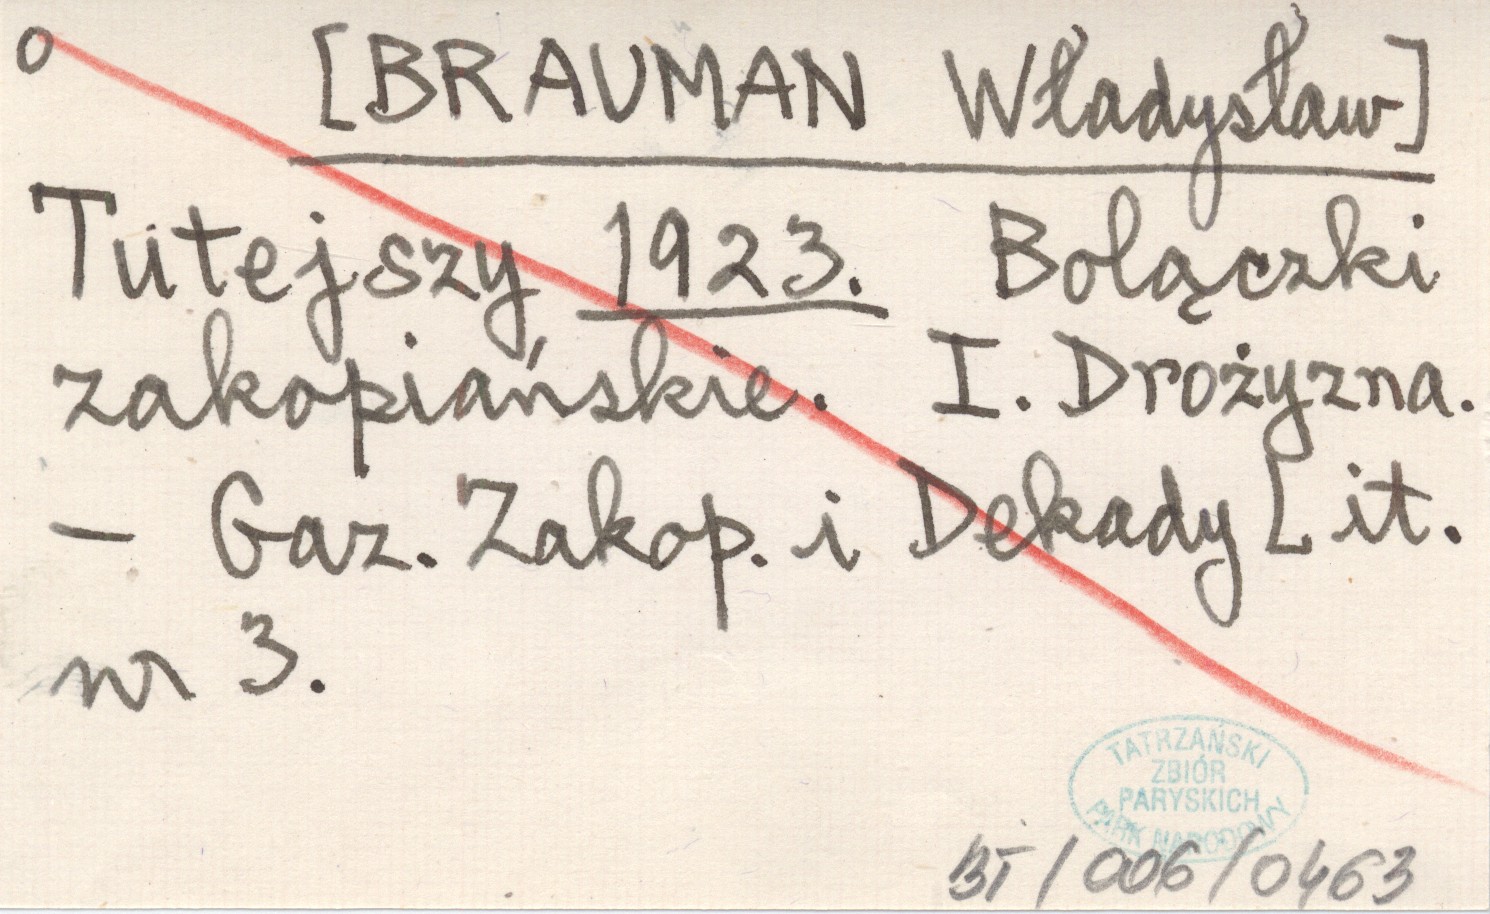 o [BRAUMAN Władysław]
Tutejszy 1923. Bolączki
zakopiańskie. I. Drożyzna.
— Gaz. Zakop. i Dekady Lit.
nr 3.
TATRZAŃSKI
ZBIÓR
PARYSKICH
PARK NARODOWY
BT/006/0463